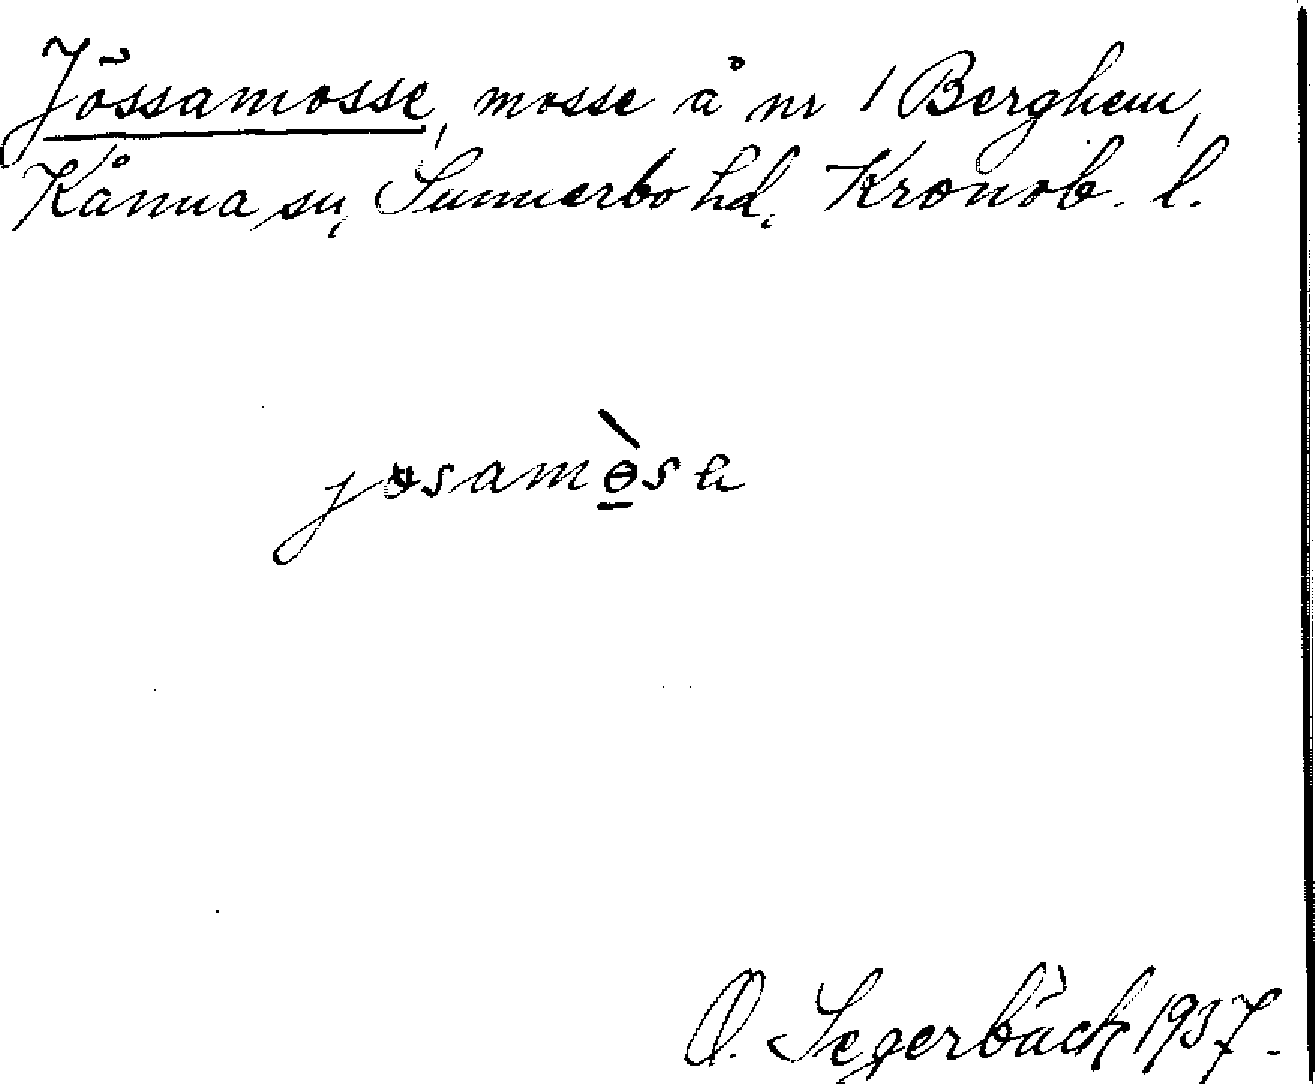 Jössamosse, mosse å nr 1 Berghem,
Kånna sn, Sunnerbo hd, Kronob. l.
jɵsamɵ̀sa
O. Segerbäck 1937.